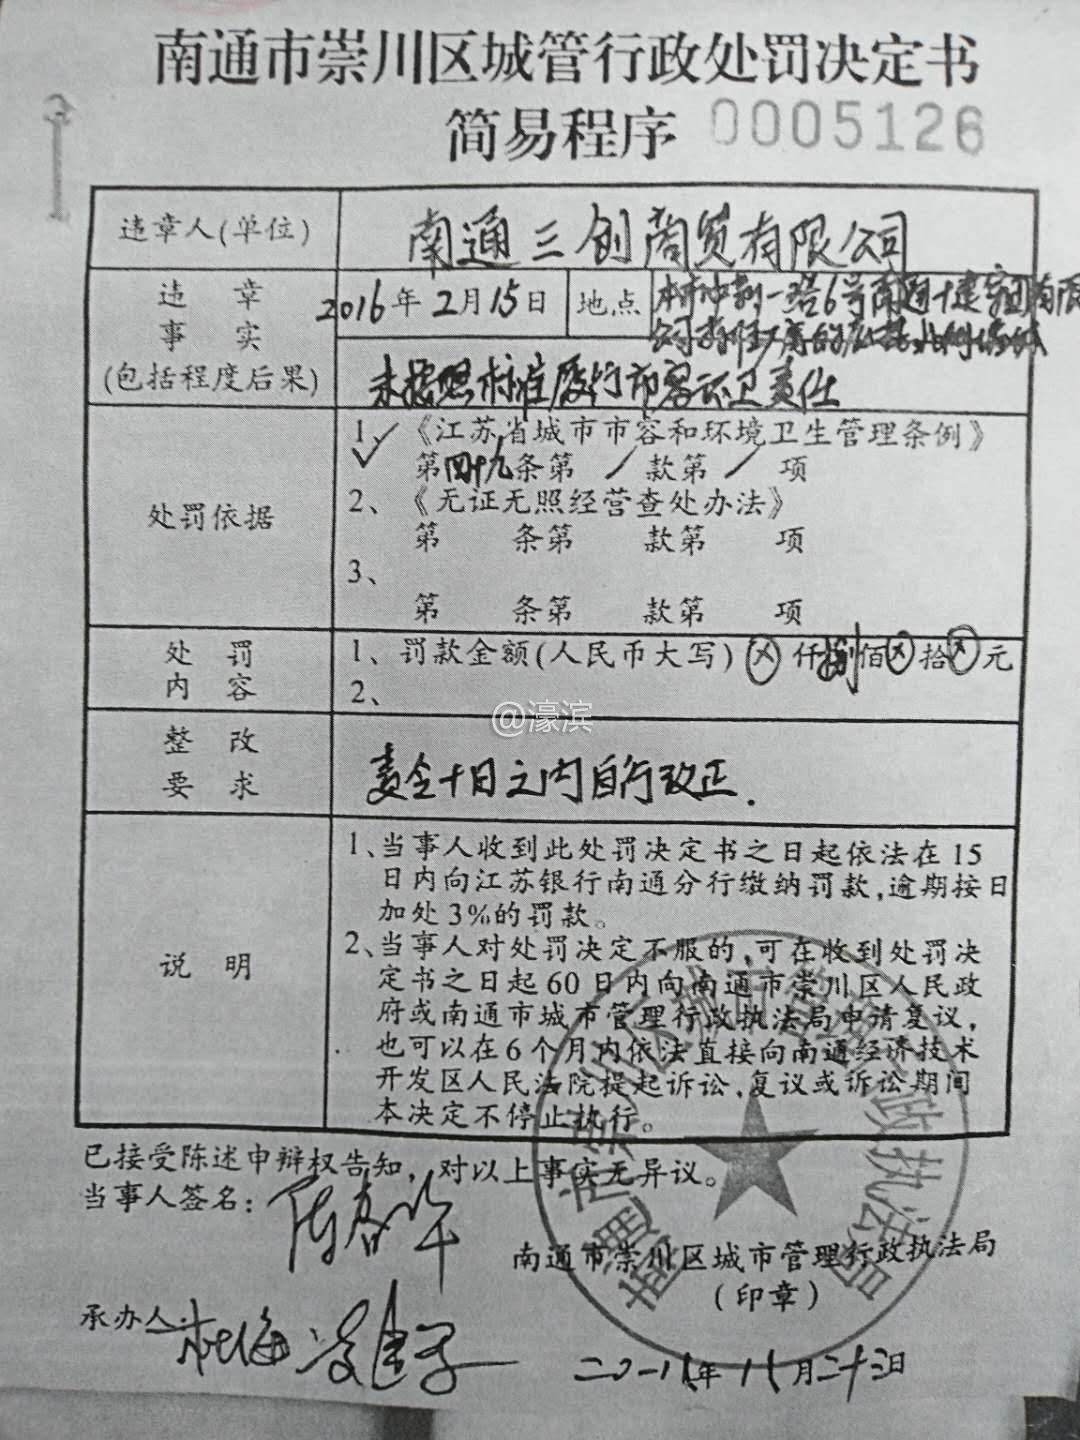 南通市崇川区城管行政处罚决定书
简易程序 0005126
违章人(单位) 南通三创商贸有限公司
违章
事实
(包括程度后果)
2016年2月15日 地点
未按照标准履行市容环卫责任
处罚依据
1、✓《江苏省城市市容和环境卫生管理条例》
第四十九条第/款第/项
2、《无证无照经营查处办法》
第 条第 款第 项
3、
第 条第 款第 项
处罚
内容
1、罚款金额(人民币大写)ⓧ仟捌佰ⓧ拾ⓧ元
2、
@濠滨
整改
要求
责令十日之内自行改正.
说明
1、当事人收到此处罚决定书之日起依法在15
日内向江苏银行南通分行缴纳罚款,逾期按日
加处3%的罚款。
2、当事人对处罚决定不服的,可在收到处罚决
定书之日起60日内向南通市崇川区人民政
府或南通市城市管理行政执法局申请复议,
也可以在6个月内依法直接向南通经济技术
开发区人民法院提起诉讼,复议或诉讼期间
本决定不停止执行。
已接受陈述申辩权告知,对以上事实无异议。
当事人签名:
南通市崇川区城市管理行政执法局
(印章)
承办人: